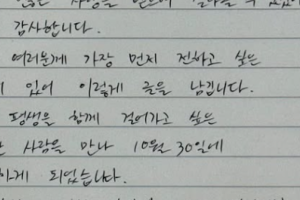 감사합니다.
여러분께 가장 먼저 전하고 싶은
있어 이렇게 글을 남깁니다.
평생을 함께 걸어가고 싶은
사람을 만나 10월 30일에
하게 되었습니다.